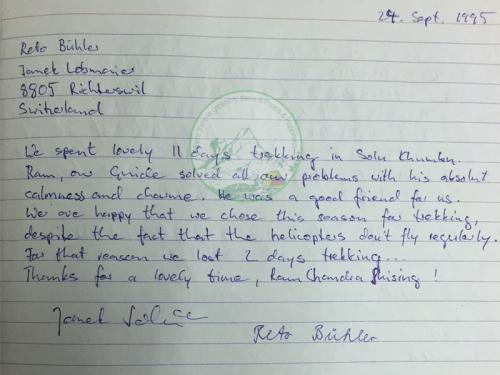 24. Sept. 1995
Reto Bühler
Janek Lobmaries
8805 Richterswil
Switzerland
We spent lovely 11 days trekking in Solu Khumbu.
Ram, our Guide solved all our problems with his absolut
calmness and charme. He was a good friend for us.
We are happy that we chose this season for trekking,
despite the fact that the helicopters don't fly regularly.
For that reason we lost 2 days trekking...
Thanks for a lovely time, Ram Chandra Shising!
Janek
Reto Bühler